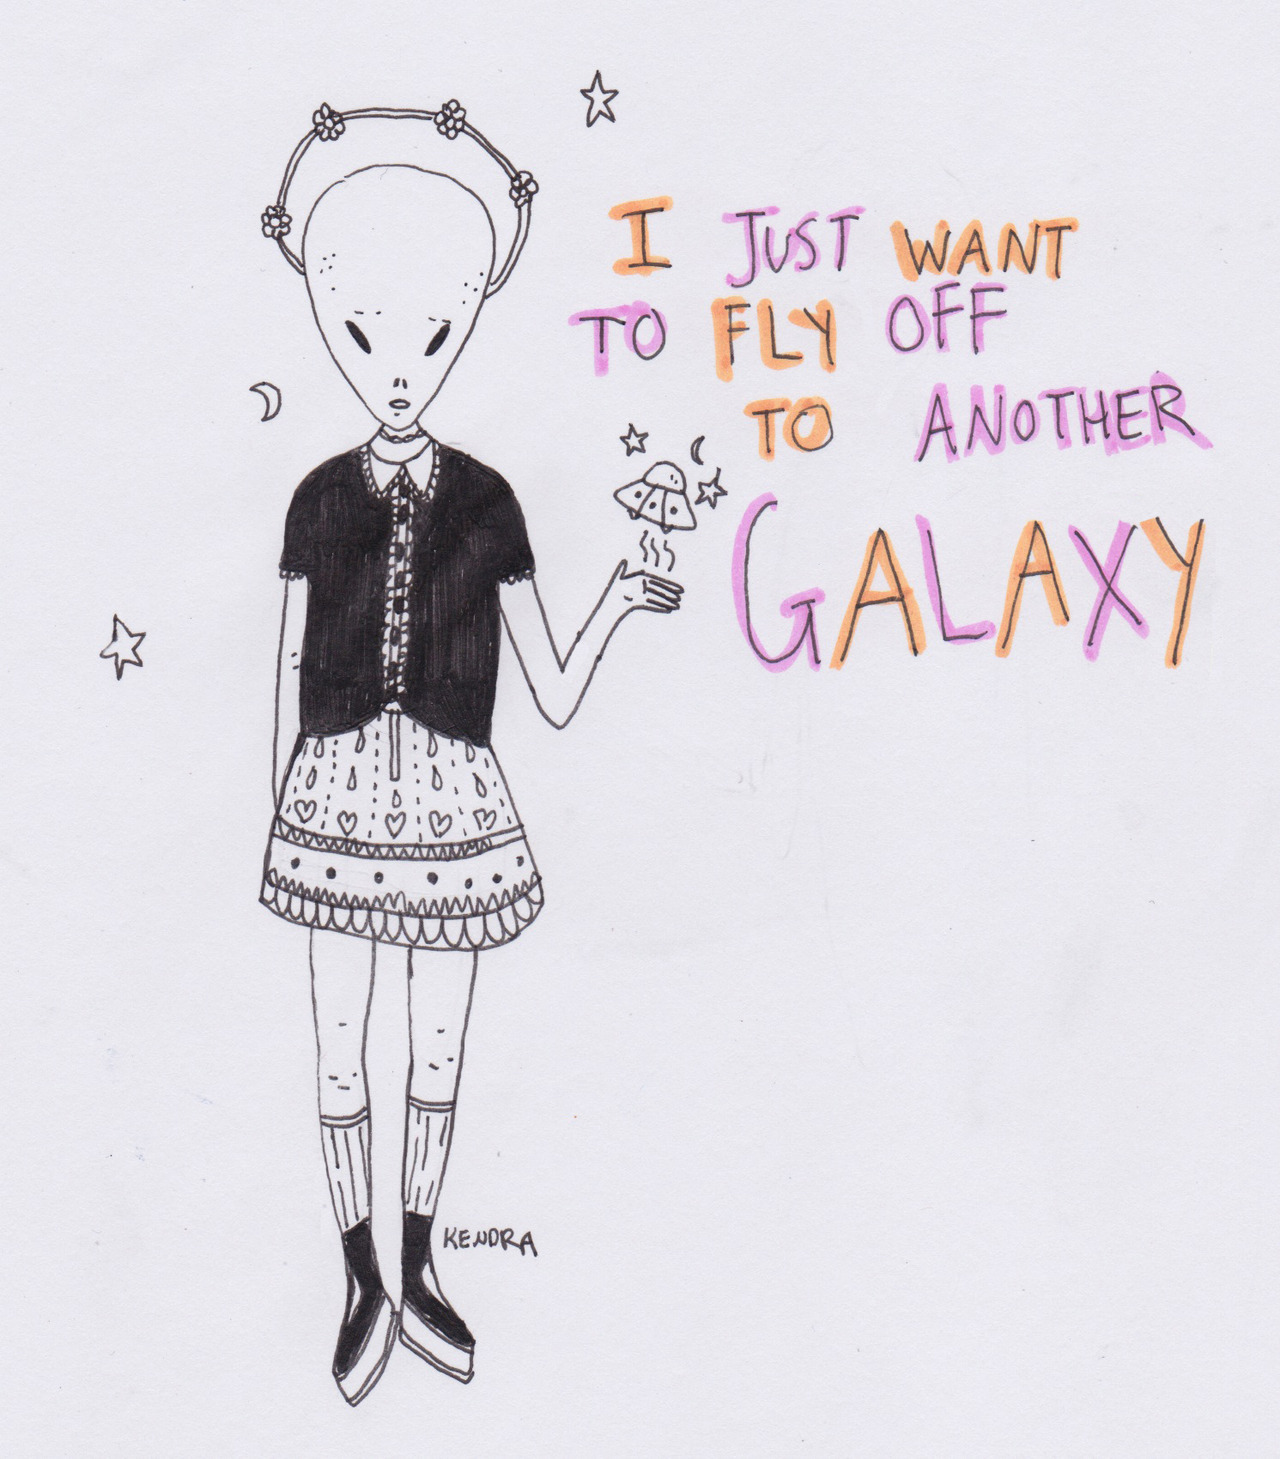 I JUST WANT
TO FLY OFF
TO ANOTHER
GALAXY
KENDRA